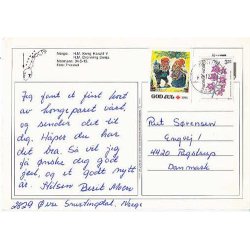 Norge: H.M. Kong Harald V
H.M. Dronning Sonja
GOD JUL
Jeg fant et fint kort
av kongeparet vårt,
og sender det til
deg. Håper du har
det bra. Så vil jeg
få ønske deg god
jul, og et godt nytt
år. Hilsen Berit Moen
2879 Øvre Snertingdal, Norge
Rut Sørensen
Engvej 1
4420 Regstrup
Danmark